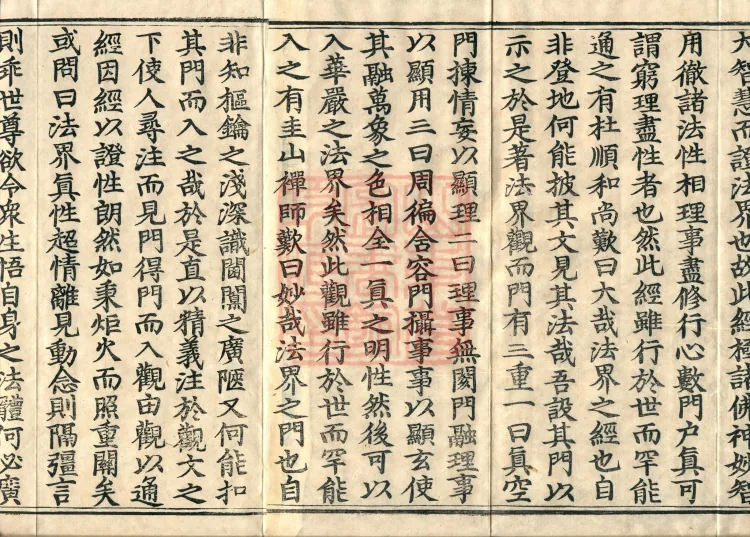 大智慧而證法界也故此經極諸佛神妙智
用徹諸法性相理事盡修行心數門户真可
謂窮理盡性者也然此經雖行於世而罕能
通之有杜順和尚歎曰大哉法界之經也自
非登地何能披其文見其法哉吾設其門以
示之於是著法界觀而門有三重一曰真空
門揀情妄以顯理二曰理事無閡門融理事
以顯用三曰周徧含容門攝事事以顯玄使
其融萬象之色相全一真之明性然後可以
入華嚴之法界矣然此觀雖行於世而罕能
入之有圭山禪師歎曰妙哉法界之門也自
非知樞鑰之淺深識閫閾之廣陿又何能扣
其門而入之哉於是直以精義注於觀文之
下使人尋注而見門得門而入觀由觀以通
經因經以證性朗然如秉炬火而照重關矣
或問曰法界真性超情離見動念則隔彊言
則乖世尊欲令衆生悟自身之法體何必廣